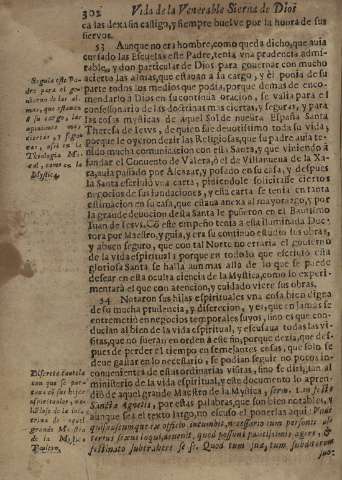 302 Vida de la Venerable Sierva de Dios
ca las dexa sin castigo, y siempre buelve por la honra de sus
siervos.
53 Aunque no era hombre, como queda dicho, que avia
cursado las Escuelas este Padre, tenia vna prudencia admi-
rable, y don particular de Dios para governar con mucho
acierto las almas, que estavan à su cargo, y èl ponia de su
parte todos los medios que podia, porque demas de enco-
mendarlo à Dios en su continua oracion, se valia para el
confessonario de las doctrinas mas ciertas, y seguras, y para
las cosas mysticas de aquel Sol de nuestra España Santa
Theresa de Iesvs, de quien fue devotissimo toda su vida;
porque le oyeron dezir las Religiosas, que su padre avia te-
nido mucha comunicacion con esta Santa, y que viniendo à
fundar el Convento de Valera, ò el de Villanueva de la Xa-
ra, avia passado por Alcazar, y posado en su casa, y despues
la Santa escriviò vna carta, pidiendole solicitasse ciertos
negocios de sus fundaciones, y esta carta se tenia en tanta
estimacion en su casa, que estava anexa al mayorazgo, y por
la grande devocion desta Santa le pusieron en el Bautismo
Juan de Iesvs. Cò este empeño tenia à esta iluminada Doc-
tora por Maestro, y guia, y era su continuo estudio sus obras,
y aviso seguro, que con tal Norte no erraria el govierno
de la vida espiritual; porque en todo lo que escriviò esta
gloriosa Santa se halla aun mas allà de lo que se puede
desear en esta oculta ciencia de la Mystica, como lo experi-
mentarà el que con atencion, y cuidado viere sus obras.
54 Notaron sus hijas espirituales vna cosa bien digna
de su mucha prudencia, y discrecion, y es, que en jamas se
entremetiò en negocios temporales suyos, sino es que con-
ducian al bien de la vida espiritual, y escusava todas las vi-
sitas, que no fueran en orden à este fin, porque dezia, que des-
pues de perder el tiempo en semejantes cosas, que solo se
deve gastar en lo necessario, se podian seguir no pocos in-
convenientes de estas ordinarias visitas, sino se dirigian al
ministerio de la vida espiritual, y este documento lo apren-
diò de aquel grande Maestro de la Mystica,
por estas palabras, que son bien notables, y
aunque sea el texto largo, no escuso el ponerlas aqui:
quis ex officio incumbit, necessario cum personis al-
terius sexus loqui, quod possunt paucissimis agere, &
festinato subtrahere se. Quod tum
Seguia este Pa-
dre para el go-
vierno de las al-
mas, que estavan
à su cargo, las
opiniones mas
ciertas, y segu-
ras, assi en la
Theologia Mo-
ral, como en la
Mystica.
Discreta cautela
con que se por-
tava con sus hijas
espirituales,
de aquel
grande Maestro
de la Mystica